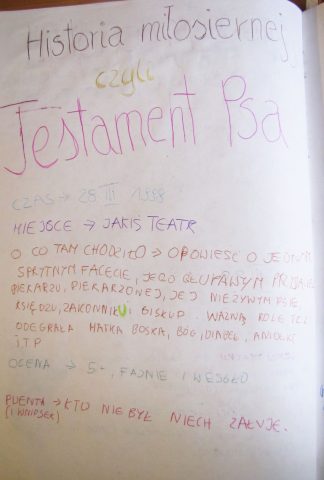 Historia miłosiernej
czyli
Testament Psa
CZAS → 28 III 1998
MIEJSCE → JAKIŚ TEATR
O CO TAM CHODZIŁO → OPOWIEŚĆ O JEDNYM
SPRYTNYM FACECIE, JEGO GŁUPAWYM PRZYJACIELU
PIEKARZU, PIEKARZOWEJ, JEJ NIEŻYWYM PSIE,
KSIĘDZU, ZAKONNIKU I BISKUP. WAŻNĄ ROLĘ TEŻ
ODEGRAŁA MATKA BOSKA, BÓG, DIABEŁ, ANIOŁKI
I.T.P
OCENA → 5+, FAJNIE I WESOŁO
PUENTA → KTO NIE BYŁ NIECH ŻAŁUJE.
(I WNIOSEK)